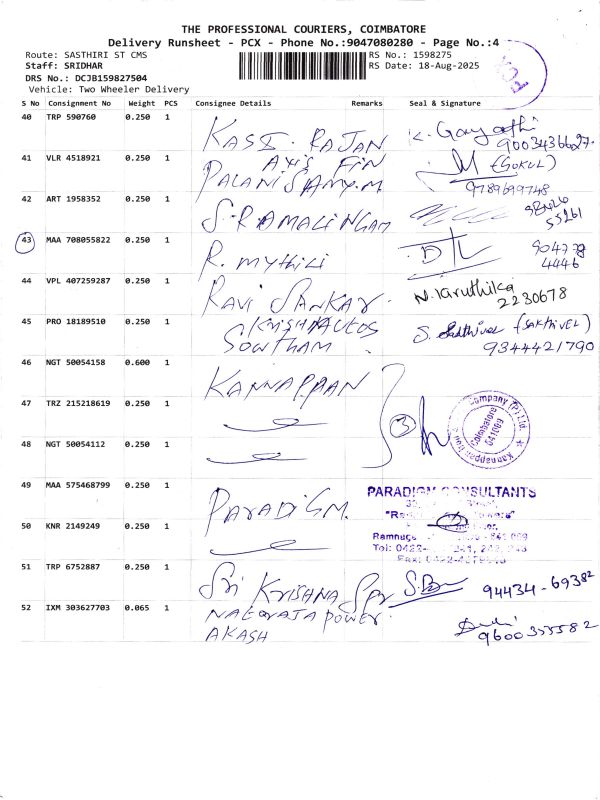 THE PROFESSIONAL COURIERS, COIMBATORE
Delivery Runsheet - PCX - Phone No.:9047080280 - Page No.:4
Route: SASTHIRI ST CMS
RS No.: 1598275
Staff: SRIDHAR
RS Date: 18-Aug-2025
DRS No.: DCJB159827504
Vehicle: Two Wheeler Delivery
S No Consignment No Weight PCS Consignee Details Remarks Seal & Signature
40 TRP 590760 0.250 1
KASI. RAJAN K. Gayathri
9003436627
41 VLR 4518921 0.250 1
AXIS FIN (GOKUL)
PALANISAMY.M 9789699748
42 ART 1958352 0.250 1
S. RAMALINGAM
43 MAA 708055822 0.250 1
R. MYTHILI 904778
4446
44 VPL 407259287 0.250 1
RAVI SANKAR N. Karuthika
2230678
45 PRO 18189510 0.250 1
KRISHNAUTOS S. Sakthivel (SAKTHIVEL)
SOWTHAM 9344421790
46 NGT 50054158 0.600 1
KANNAPPAN
47 TRZ 215218619 0.250 1
3
Company (P) Ltd.
Coimbatore
641009
48 NGT 50054112 0.250 1
49 MAA 575468799 0.250 1
PARADIGM PARADIGM CONSULTANTS
50 KNR 2149249 0.250 1
Ramnagar 641 009
Tel: 0422-
Fax: 0422-
51 TRP 6752887 0.250 1
Sri KRISHNA Spr 94434-69382
52 IXM 303627703 0.065 1
NATARAJA POWER
AKASH 9600355582